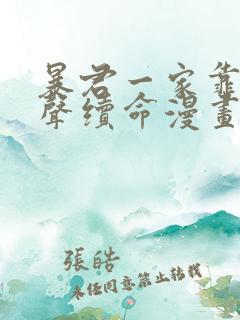 暴君一家靠
聲續命漫畫
張皓
未經同意禁止轉載